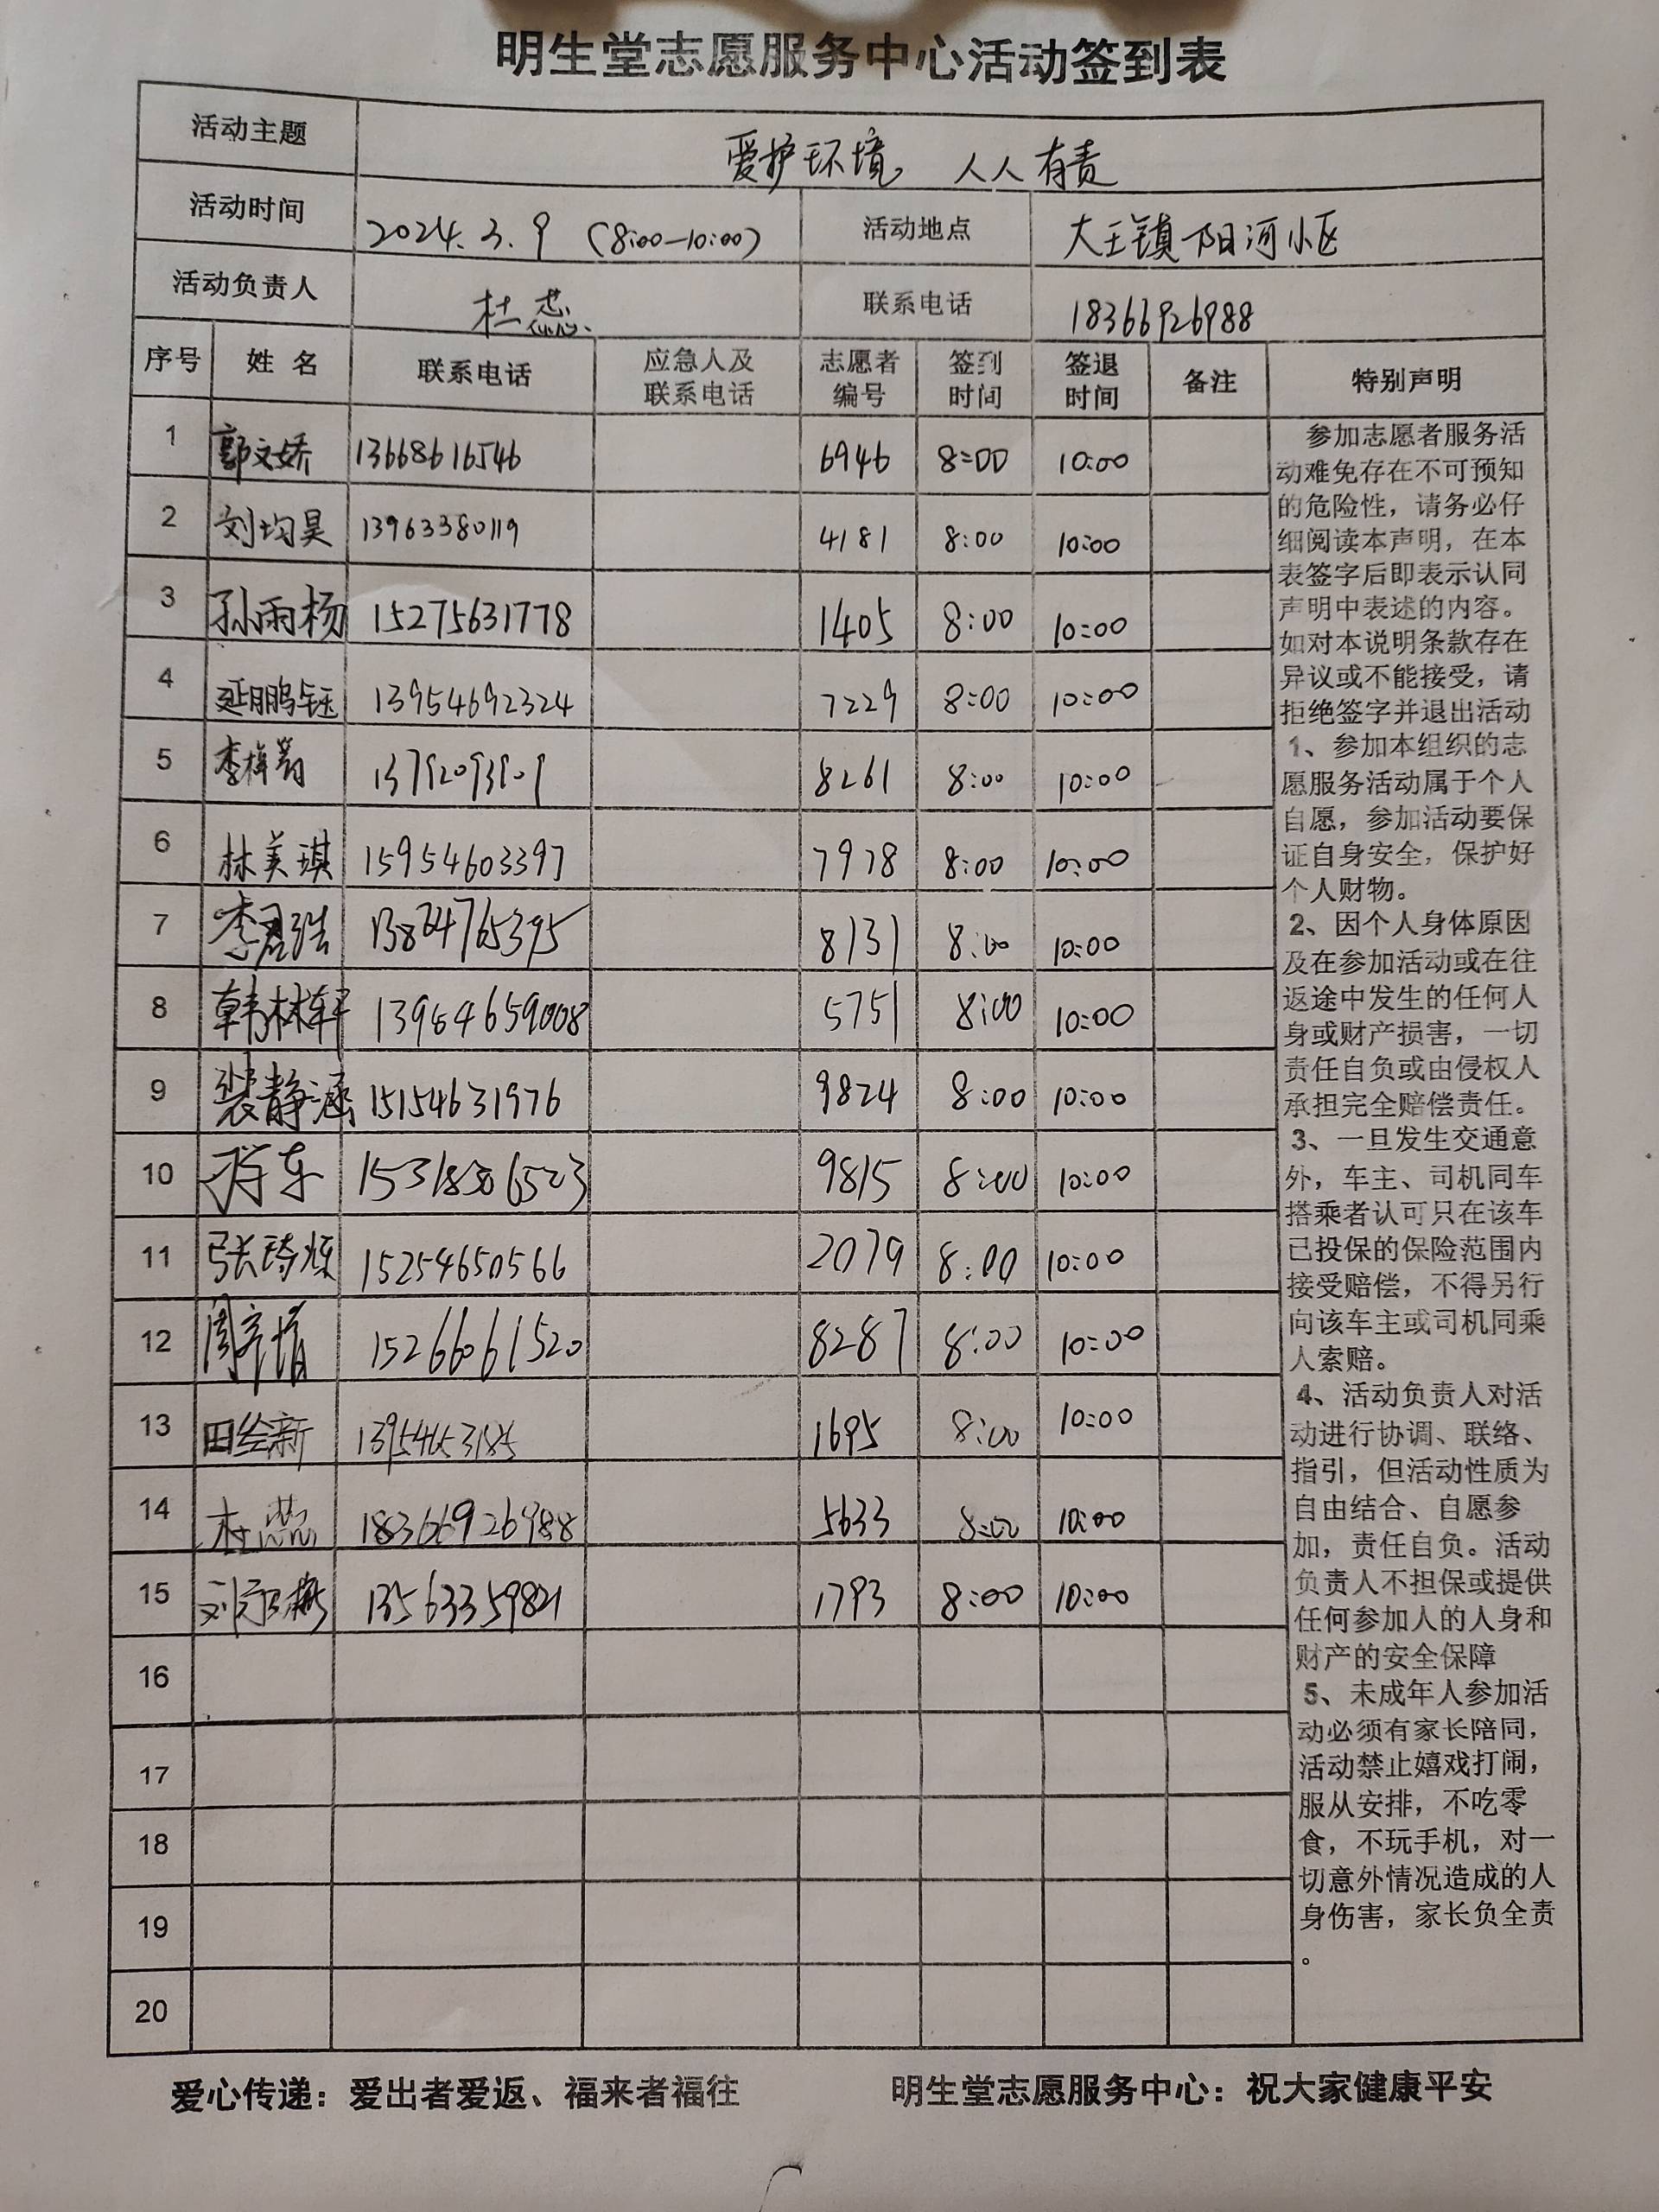 明生堂志愿服务中心活动签到表
活动主题 爱护环境 人人有责
活动时间 2024.3.9 (8:00—10:00) 活动地点 大王镇阳河小区
活动负责人 杜蕊 联系电话 18366926988
序号 姓 名 联系电话 应急人及联系电话 志愿者编号 签到时间 签退时间 备注 特别声明
1 郭文娇 13668616546 6946 8:00 10:00
2 刘均昊 13963380119 4181 8:00 10:00
3 孙雨杨 15275631778 1405 8:00 10:00
4 延鹏钰 13954692324 7229 8:00 10:00
5 李梓 8261 8:00 10:00
6 林美琪 15954603397 7978 8:00 10:00
7 李君浩 8131 8:00 10:00
8 韩林轩 5751 8:00 10:00
9 裴静涵 15154631976 9824 8:00 10:00
10 9815 8:00 10:00
11 张琦 15254650566 2079 8:00 10:00
12 周彦 15266061520 8287 8:00 10:00
13 田绘新 1695 8:00 10:00
14 杜蕊 18366926988 5633 8:00 10:00
15 刘 13563359821 1793 8:00 10:00
16
17
18
19
20
参加志愿者服务活
动难免存在不可预知
的危险性，请务必仔
细阅读本声明，在本
表签字后即表示认同
声明中表述的内容。
如对本说明条款存在
异议或不能接受，请
拒绝签字并退出活动
1、参加本组织的志
愿服务活动属于个人
自愿，参加活动要保
证自身安全，保护好
个人财物。
2、因个人身体原因
及在参加活动或在往
返途中发生的任何人
身或财产损害，一切
责任自负或由侵权人
承担完全赔偿责任。
3、一旦发生交通意
外，车主、司机同车
搭乘者认可只在该车
已投保的保险范围内
接受赔偿，不得另行
向该车主或司机同乘
人索赔。
4、活动负责人对活
动进行协调、联络、
指引，但活动性质为
自由结合、自愿参
加，责任自负。活动
负责人不担保或提供
任何参加人的人身和
财产的安全保障
5、未成年人参加活
动必须有家长陪同，
活动禁止嬉戏打闹，
服从安排，不吃零
食，不玩手机，对一
切意外情况造成的人
身伤害，家长负全责
。
爱心传递：爱出者爱返、福来者福往 明生堂志愿服务中心：祝大家健康平安